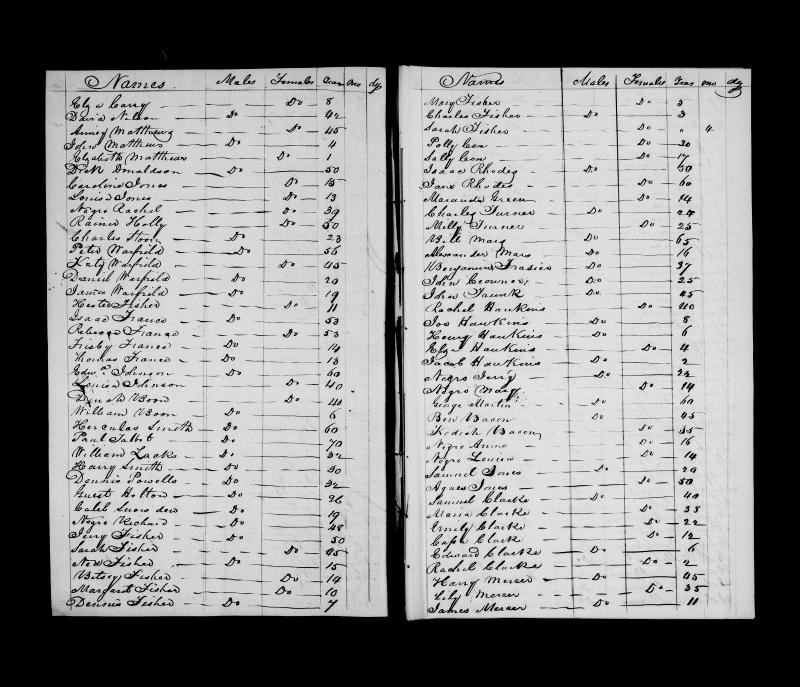 Names Males Females Years mo dy
Elza Carry — Do 8
David Nelson — Do 42
Amey Matthews — Do 45
John Matthews Do 4
Elzabeth Matthews Do 1
Dick Donaldson — Do 50
Caroline Jones — Do 15
Louisa Jones — Do 13
Negro Rachel — Do 39
Rainer Holly — Do 50
Charles — Do 23
Peter Warfield — Do 56
Katy Warfield — Do 45
Daniel Warfield — Do 20
James Warfield — Do 19
Hester Fisher Do 11
Isaac France — Do 53
Rebecca France — Do 53
Frisby France — Do 14
Thomas France — Do 13
Edwd. Johnson — Do 60
Louisa Johnson — Do 40
Dinah Boon — Do 40
William Boon Do 6
Herculas Smith — Do 60
Paul Talbot — Do 70
William Lacks — Do 32
Harry Smith — Do 30
Dennis Powells Do 32
Guest Holton — Do 26
Caleb Snowden — Do 19
Negro Richard — Do 48
Jerry Fisher — Do 50
Sarah Fisher — Do 45
Fisher — Do 15
Betsey Fisher — Do 14
Margaret Fisher — Do 10
Dennis Fisher — Do 7
Names Males Females Years mo dy
Mary Fisher Do 5
Charles Fisher — Do 3
Sarah Fisher — Do " 4
Polly Coon — Do 30
Sally Coon — Do 17
Isaac Rhodes — Do 50
Jane Rhodes — Do 60
Maranda Green — Do 14
Charles Turner — Do 24
Milly Turner — Do 25
Bill Mars Do 65
Alexander Mars Do 16
Benjamin Frasier Do 37
John Do 25
John Do 45
Rachel Hawkins Do 40
Hawkins — Do 8
Henry Hawkins — Do 6
Elza Hawkins — Do 4
Jacob Hawkins Do 2
Negro Jerry — Do 22
Negro Mary — Do 14
George Martin — Do 60
Ben Bacon — Do 45
Bacon Do 35
Negro Anna — Do 16
Negro Louisa — Do 14
Samuel Jones — Do 29
Agnes Jones — Do 50
Samuel Clarke — Do 40
Maria Clarke — Do 38
Emily Clarke — Do 22
Clark — Do 12
Edward Clarke Do 6
Rachel Clarke — Do 2
Harry Mercer — Do 45
Lily Mercer — Do 35
James Mercer — Do 11